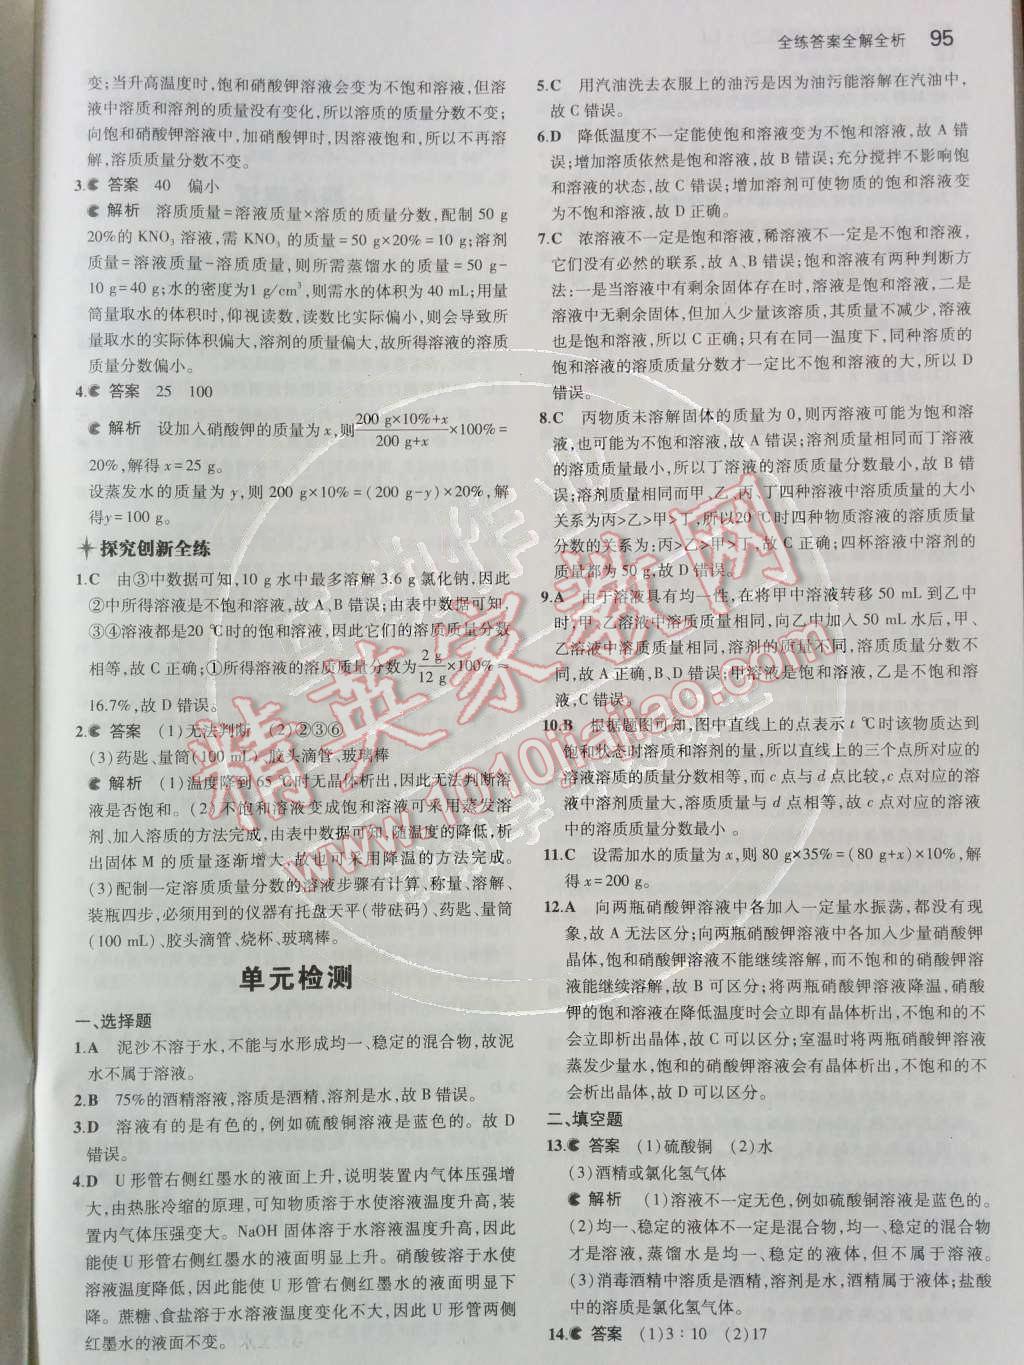 全练答案全解全析 95
变;当升高温度时,饱和硝酸钾溶液会变为不饱和溶液,但溶
液中溶质和溶剂的质量没有变化,所以溶质的质量分数不变;
向饱和硝酸钾溶液中,加硝酸钾时,因溶液饱和,所以不再溶
解,溶质质量分数不变。
3. 答案 40 偏小
解析 溶质质量=溶液质量×溶质的质量分数,配制 50 g
20%的 KNO₃ 溶液,需 KNO₃ 的质量=50 g×20%=10 g;溶剂
质量=溶液质量-溶质质量,则所需蒸馏水的质量=50 g-
10 g=40 g;水的密度为1 g/cm³,则需水的体积为 40 mL;用量
筒量取水的体积时,仰视读数,读数比实际偏小,则会导致所
量取水的实际体积偏大,溶剂的质量偏大,故所得溶液的溶质
质量分数偏小。
4. 答案 25 100
解析 设加入硝酸钾的质量为 x,则 (200 g×10%+x)/(200 g+x) ×100%=
20%,解得 x=25 g。
设蒸发水的质量为 y,则 200 g×10%=(200 g-y)×20%,解
得y=100 g。
探究创新全练
1.C 由③中数据可知,10 g 水中最多溶解 3.6 g 氯化钠,因此
②中所得溶液是不饱和溶液,故 A、B 错误;由表中数据可知,
③④溶液都是20 ℃时的饱和溶液,因此它们的溶质质量分数
相等,故 C 正确;①所得溶液的溶质质量分数为 2 g/12 g ×100%=
16.7%,故 D 错误。
2. 答案 (1)无法判断 (2)②③⑥
(3)药匙、量筒(100 mL)、胶头滴管、玻璃棒
解析 (1)温度降到 65 ℃时无晶体析出,因此无法判断溶
液是否饱和。(2)不饱和溶液变成饱和溶液可采用蒸发溶
剂、加入溶质的方法完成,由表中数据可知,随温度的降低,析
出固体 M 的质量逐渐增大,故也可采用降温的方法完成。
(3)配制一定溶质质量分数的溶液步骤有计算、称量、溶解、
装瓶四步,必须用到的仪器有托盘天平(带砝码)、药匙、量筒
(100 mL)、胶头滴管、烧杯、玻璃棒。
单元检测
一、选择题
1.A 泥沙不溶于水,不能与水形成均一、稳定的混合物,故泥
水不属于溶液。
2.B 75%的酒精溶液,溶质是酒精,溶剂是水,故 B 错误。
3.D 溶液有的是有色的,例如硫酸铜溶液是蓝色的。故 D
错误。
4.D U 形管右侧红墨水的液面上升,说明装置内气体压强增
大,由热胀冷缩的原理,可知物质溶于水使溶液温度升高,装
置内气体压强变大。NaOH 固体溶于水溶液温度升高,因此
能使 U 形管右侧红墨水的液面明显上升。硝酸铵溶于水使
溶液温度降低,因此能使 U 形管右侧红墨水的液面明显下
降。蔗糖、食盐溶于水溶液温度变化不大,因此 U 形管两侧
红墨水的液面不变。
5.C 用汽油洗去衣服上的油污是因为油污能溶解在汽油中,
故 C 错误。
6.D 降低温度不一定能使饱和溶液变为不饱和溶液,故 A 错
误;增加溶质依然是饱和溶液,故 B 错误;充分搅拌不影响饱
和溶液的状态,故 C 错误;增加溶剂可使物质的饱和溶液变
为不饱和溶液,故 D 正确。
7.C 浓溶液不一定是饱和溶液,稀溶液不一定是不饱和溶液,
它们没有必然的联系,故 A、B 错误;饱和溶液有两种判断方
法:一是当溶液中有剩余固体存在时,溶液是饱和溶液,二是
溶液中无剩余固体,但加入少量该溶质,其质量不减少,溶液
也是饱和溶液,所以 C 正确;只有在同一温度下,同种溶质的
饱和溶液的溶质质量分数才一定比不饱和溶液的大,所以 D
错误。
8.C 丙物质未溶解固体的质量为 0,则丙溶液可能为饱和溶
液,也可能为不饱和溶液,故 A 错误;溶剂质量相同而丁溶液
的溶质质量最小,所以丁溶液的溶质质量分数最小,故 B 错
误;溶剂质量相同而甲、乙、丙、丁四种溶液中溶质质量的大小
关系为丙>乙>甲>丁,所以20 ℃时四种物质溶液的溶质质量
分数的关系为:丙>乙>甲>丁,故 C 正确;四杯溶液中溶剂的
质量都为 50 g,故 D 错误。
9.A 由于溶液具有均一性,在将甲中溶液转移 50 mL 到乙中
时,甲、乙溶液中溶质质量相同,向乙中加入 50 mL水后,甲、
乙溶液中溶质质量相同,溶剂的质量不同,溶质质量分数不
同,故 A正确,B、D 错误;甲溶液是饱和溶液,乙是不饱和溶
液,C 错误。
10.B 根据题图可知,图中直线上的点表示 t ℃时该物质达到
饱和状态时溶质和溶剂的量,所以直线上的三个点所对应的
溶液溶质的质量分数相等,而 c 点与 d 点比较,c 点对应的溶
液中溶剂质量大,溶质质量与 d 点相等,故 c 点对应的溶液
中的溶质质量分数最小 。
11.C 设需加水的质量为 x,则 80 g×35%=(80 g+x)×10%,解
得 x=200 g。
12.A 向两瓶硝酸钾溶液中各加入一定量水振荡,都没有现
象,故 A 无法区分;向两瓶硝酸钾溶液中各加入少量硝酸钾
晶体,饱和硝酸钾溶液不能继续溶解,而不饱和的硝酸钾溶
液能继续溶解,故 B 可以区分;将两瓶硝酸钾溶液降温,硝酸
钾的饱和溶液在降低温度时会立即有晶体析出,不饱和的不
会立即析出晶体,故 C 可以区分;室温时将两瓶硝酸钾溶液
蒸发少量水,饱和的硝酸钾溶液会有晶体析出,不饱和的不
会析出晶体,故 D 可以区分。
二、填空题
13. 答案 (1)硫酸铜 (2)水
(3)酒精或氯化氢气体
解析 (1)溶液不一定无色,例如硫酸铜溶液是蓝色的。
(2)均一、稳定的液体不一定是混合物,均一、稳定的混合物
才是溶液,蒸馏水是均一、稳定的液体,但不属于溶液。
(3)消毒酒精中溶质是酒精,溶剂是水,酒精属于液体;盐酸
中的溶质是氯化氢气体。
14. 答案 (1)3∶10 (2)17
精英家教网
www.1010jiajiao.com